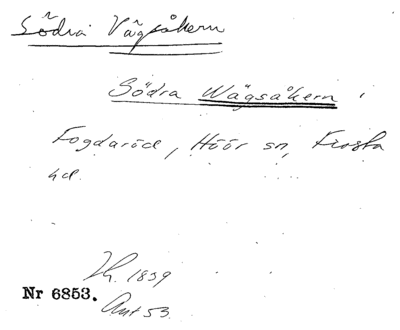 Södra Vägsåkern
Södra Wägsåkern
Fogdaröd, Höör sn, Frosta
hd.
Lh. 1839
Nr 6853.
Akt 53